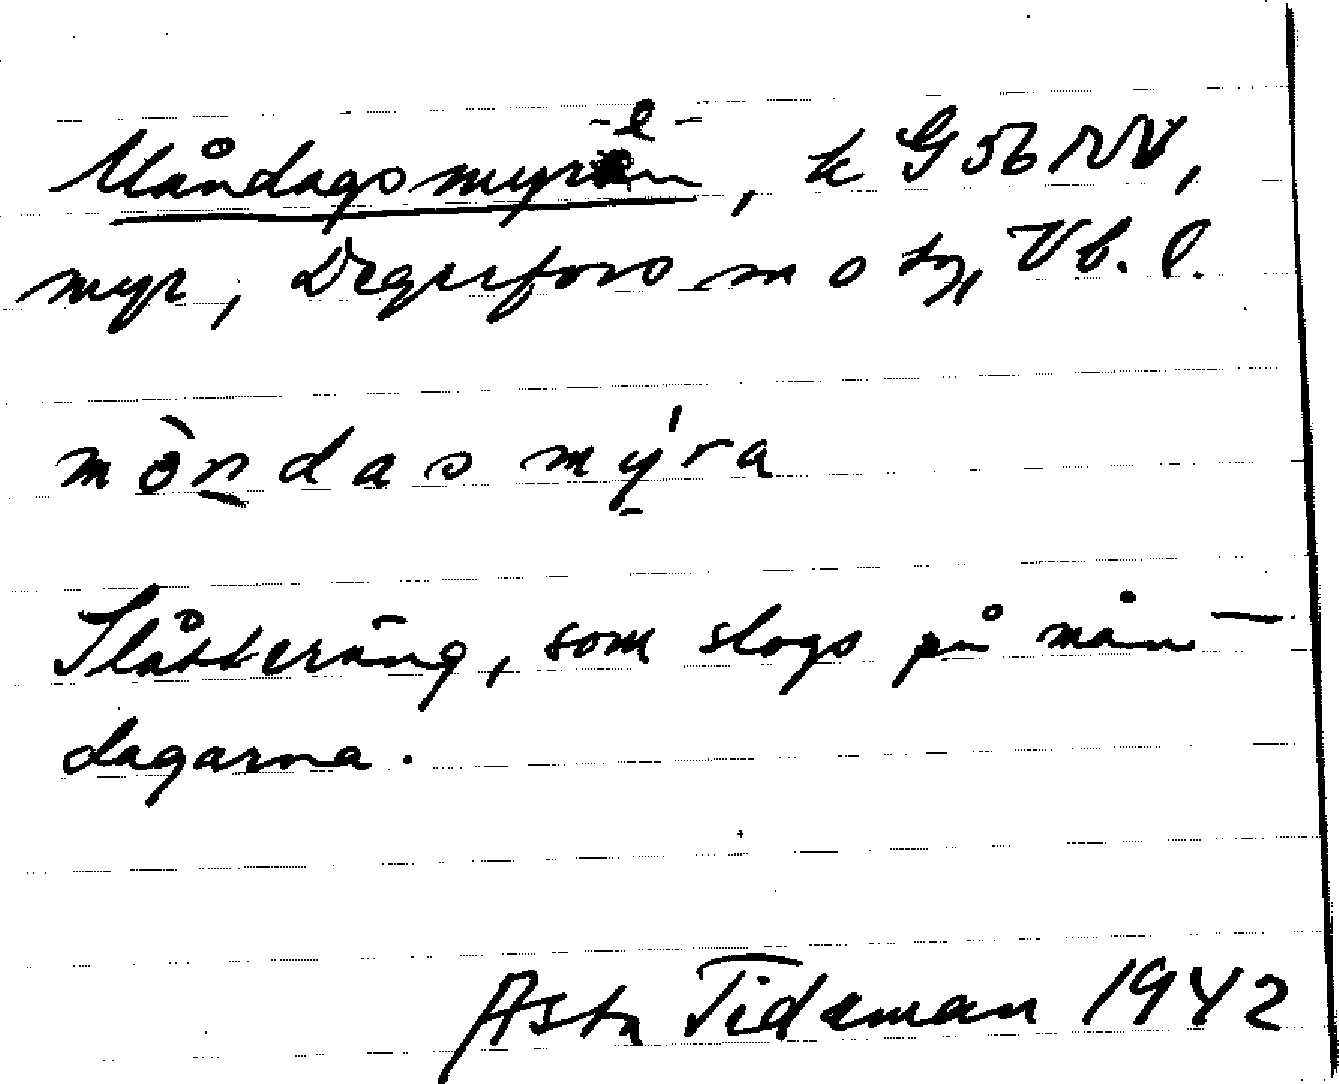 -e-
Måndagsmyren, k G 56 NV,
myr, Degerfors sn o tg, Vb. l.
mò̱ndas mýra
Slåtteräng, som slogs på mån-
dagarna.
Asta Tideman 1942